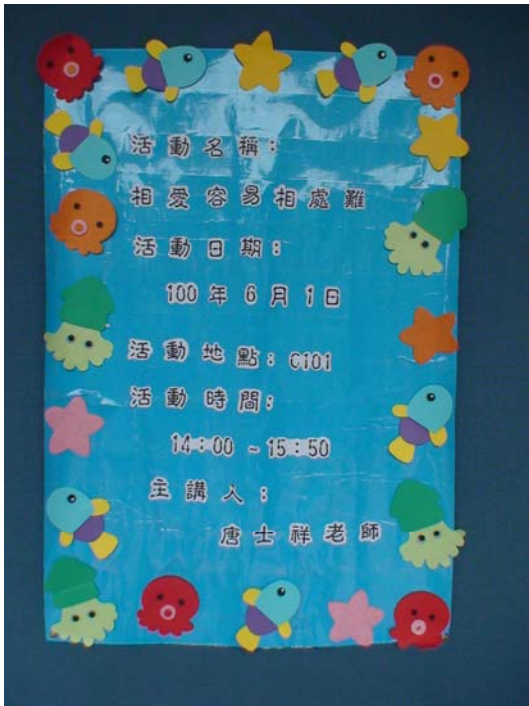 活動名稱：
相愛容易相處難
活動日期：
100年6月1日
活動地點：C101
活動時間：
14：00～15：50
主講人：
唐士祥老師